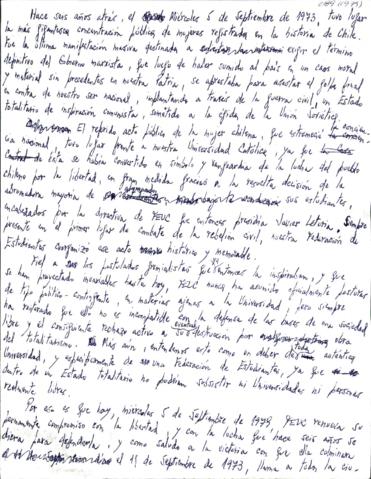 Hace seis años atrás, el Miércoles 5 de Septiembre de 1973, tuvo lugar
la más gigantesca concentración pública de mujeres registrada en la historia de Chile.
Fue la última manifestación masiva destinada a exigir el término
definitivo del Gobierno marxista, que luego de haber sumido al país en un caos moral
y material sin precedentes en nuestra Patria, se aprestaba para asestar el golpe final
en contra de nuestro ser nacional, implantando a través de la guerra civil, un Estado
totalitario de inspiración comunista, sometido a la égida de la Unión Soviética.
El referido acto público de la mujer chilena, que estremeció la
nacional, tuvo lugar frente a nuestra Universidad Católica, ya que
ésta se había convertido en símbolo y vanguardia de la lucha del pueblo
chileno por la libertad, en gran medida gracias a la resuelta decisión de la
abrumadora mayoría de sus estudiantes,
encabezados por la directiva de FEUC que entonces presidía Javier Leturia. Siempre
presente en el primer lugar de combate de la rebelión civil, nuestra Federación de
Estudiantes organizó ese acto histórico y memorable.
Fiel a los postulados gremialistas que entonces la inspiraban, y que
se han proyectado invariables hasta hoy, FEUC nunca ha asumido oficialmente posturas
de tipo político-contingente, en materias ajenas a la Universidad, pero siempre
ha reiterado que ello no es incompatible con la defensa de las bases de una sociedad
libre y el consiguiente rechazo activo a su eventual destrucción por obra
del totalitarismo. Más aún, entendemos esto como un deber de toda auténtica
Universidad, y específicamente de una Federación de Estudiantes, ya que
dentro de un Estado totalitario no podrían subsistir ni Universidades ni personas
realmente libres.
Por eso es que hoy, miércoles 5 de Septiembre de 1979, FEUC renueva su
permanente compromiso con la libertad, y con la lucha que hace seis años se
diera para defenderla, y como saludo a la victoria con que ella culminara
el 11 de Septiembre de 1973, llama a todos los